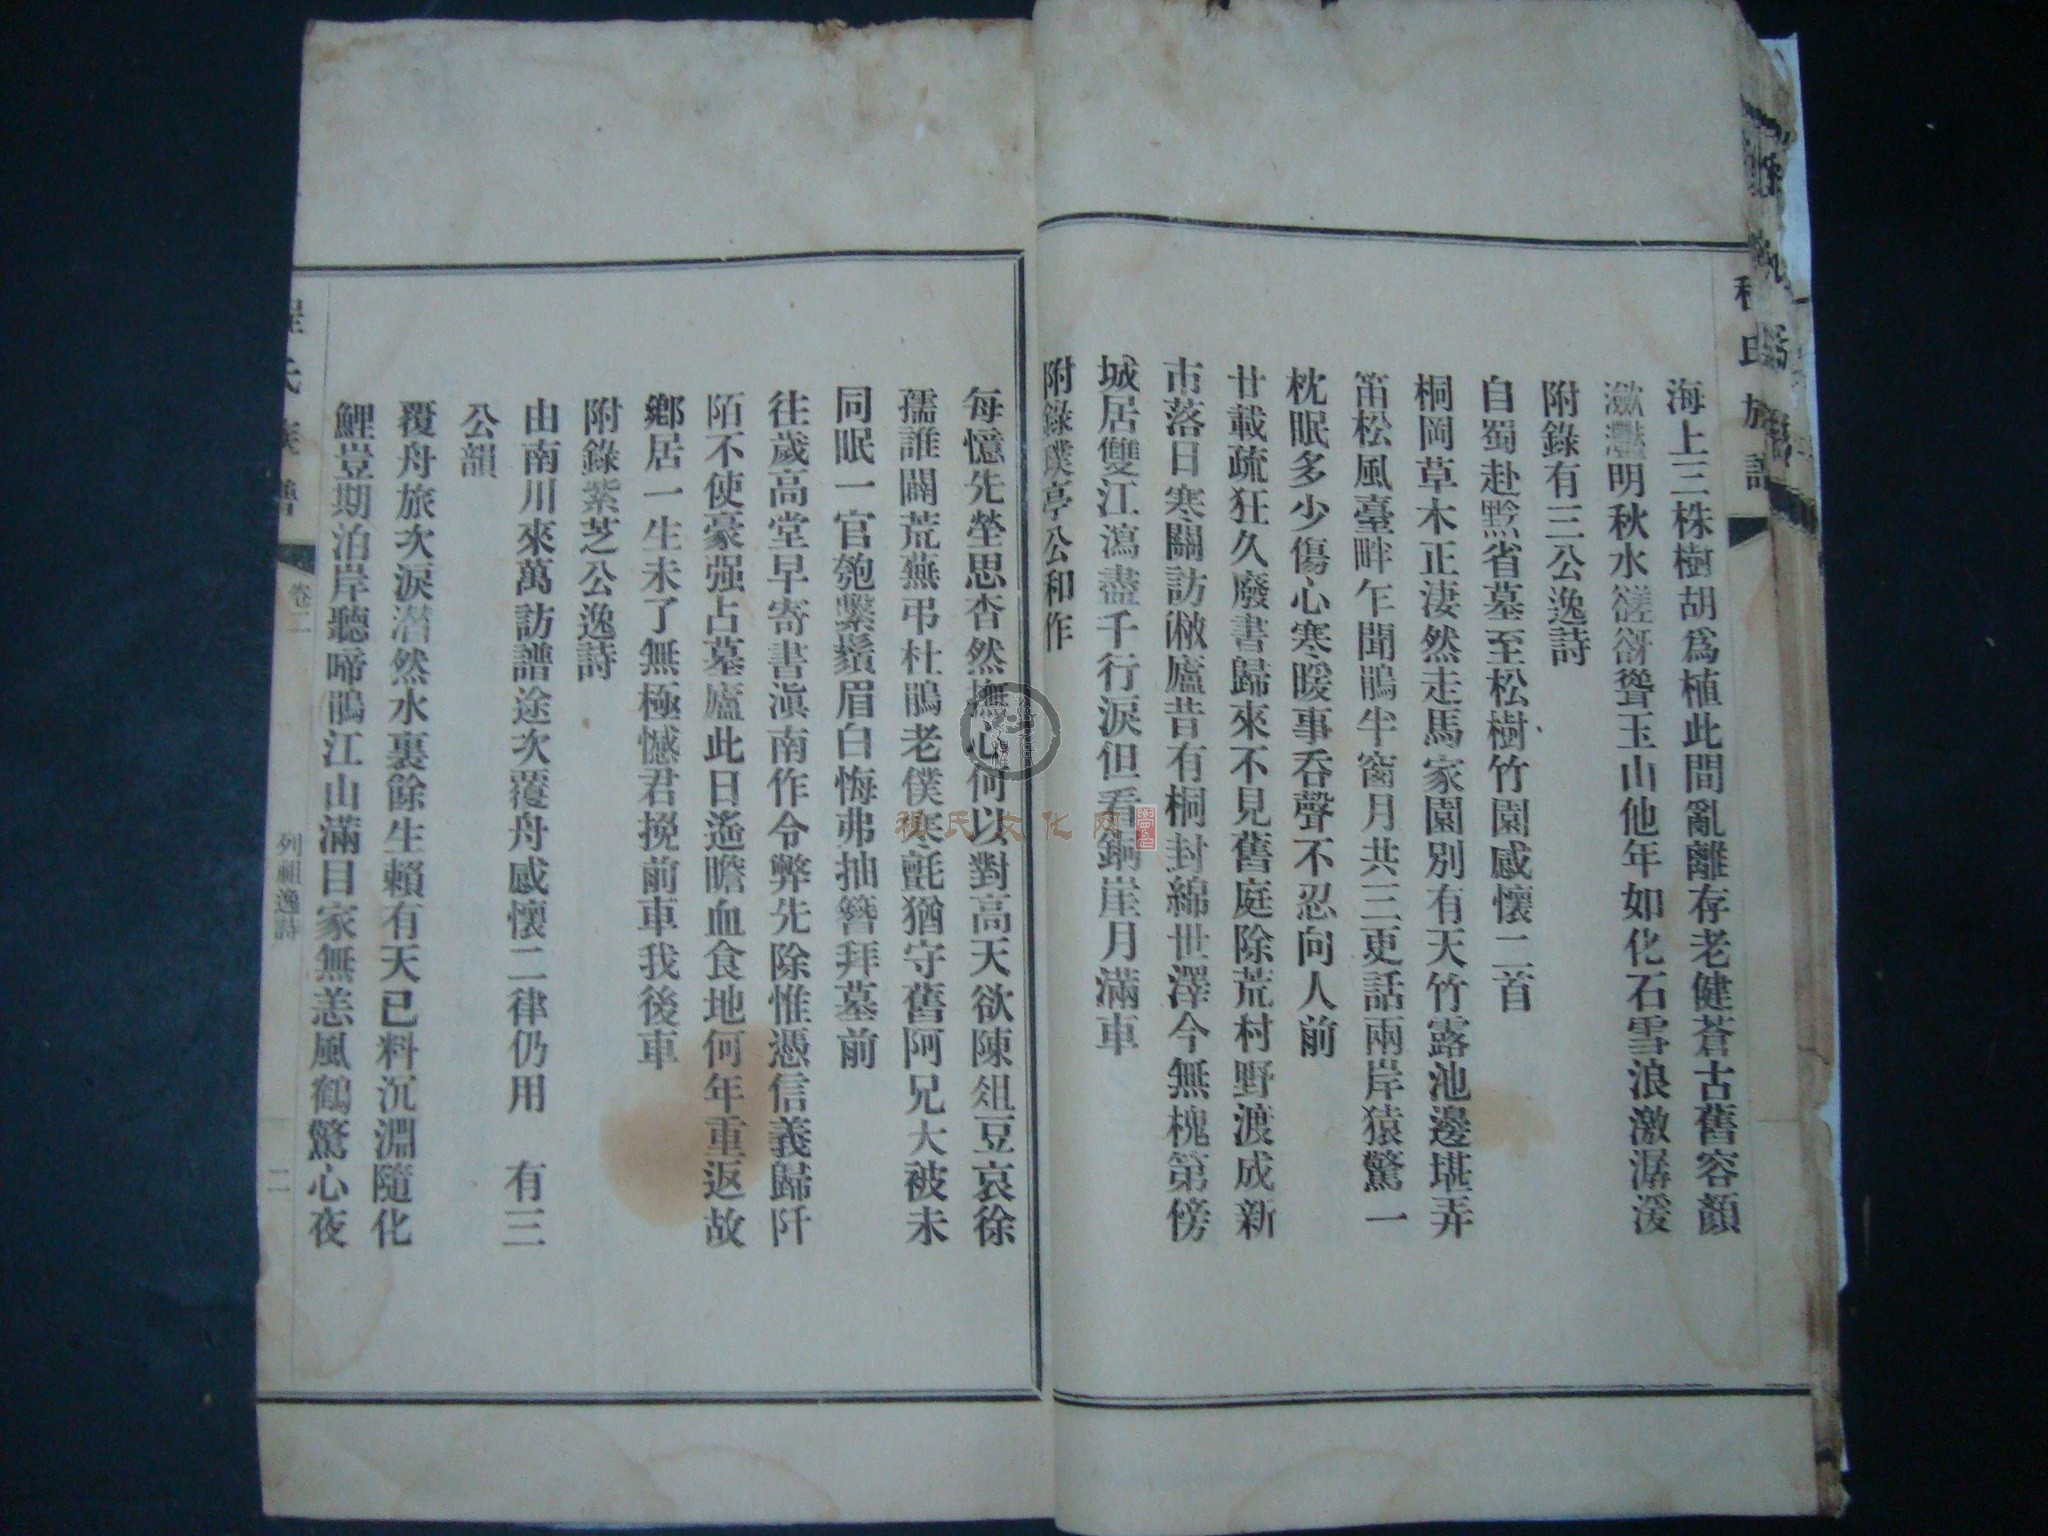 海上三株樹胡爲植此間亂離存老健蒼古舊容顏
瀲灩明秋水㠝谺聳玉山他年如化石雪浪激潺湲
附錄有三公逸詩
自蜀赴黔省墓至松樹竹園感懷二首
桐岡草木正淒然走馬家園別有天竹露池邊堪弄
笛松風臺畔乍聞鵑半窗月共三更話兩岸猿驚一
枕眠多少傷心寒暖事吞聲不忍向人前
廿載疏狂久廢書歸來不見舊庭除荒村野渡成新
市落日寒關訪敝廬昔有桐封綿世澤今無槐第傍
城居雙江瀉盡千行淚但看銅崖月滿車
附錄僕亭公和作
每憶先塋思杳然撫心何以對高天欲陳俎豆哀徐
孺誰闢荒蕪弔杜鵑老僕寒氈猶守舊阿兄大被未
同眠一官匏繫鬚眉白悔弗抽簪拜墓前
往歲高堂早寄書滇南作令弊先除惟憑信義歸阡
陌不使豪强占墓廬此日遙瞻血食地何年重返故
鄕居一生未了無極憾君挽前車我後車
附錄紫芝公逸詩
由南川來萬訪譜途次覆舟感懷二律仍用 有三
公韻
覆舟旅次淚潸然水裏餘生賴有天已料沉淵隨化
鯉豈期泊岸聽啼鵑江山滿目家無恙風鶴驚心夜
氏族譜
卷二
列祖逸詩
二
程氏文化网